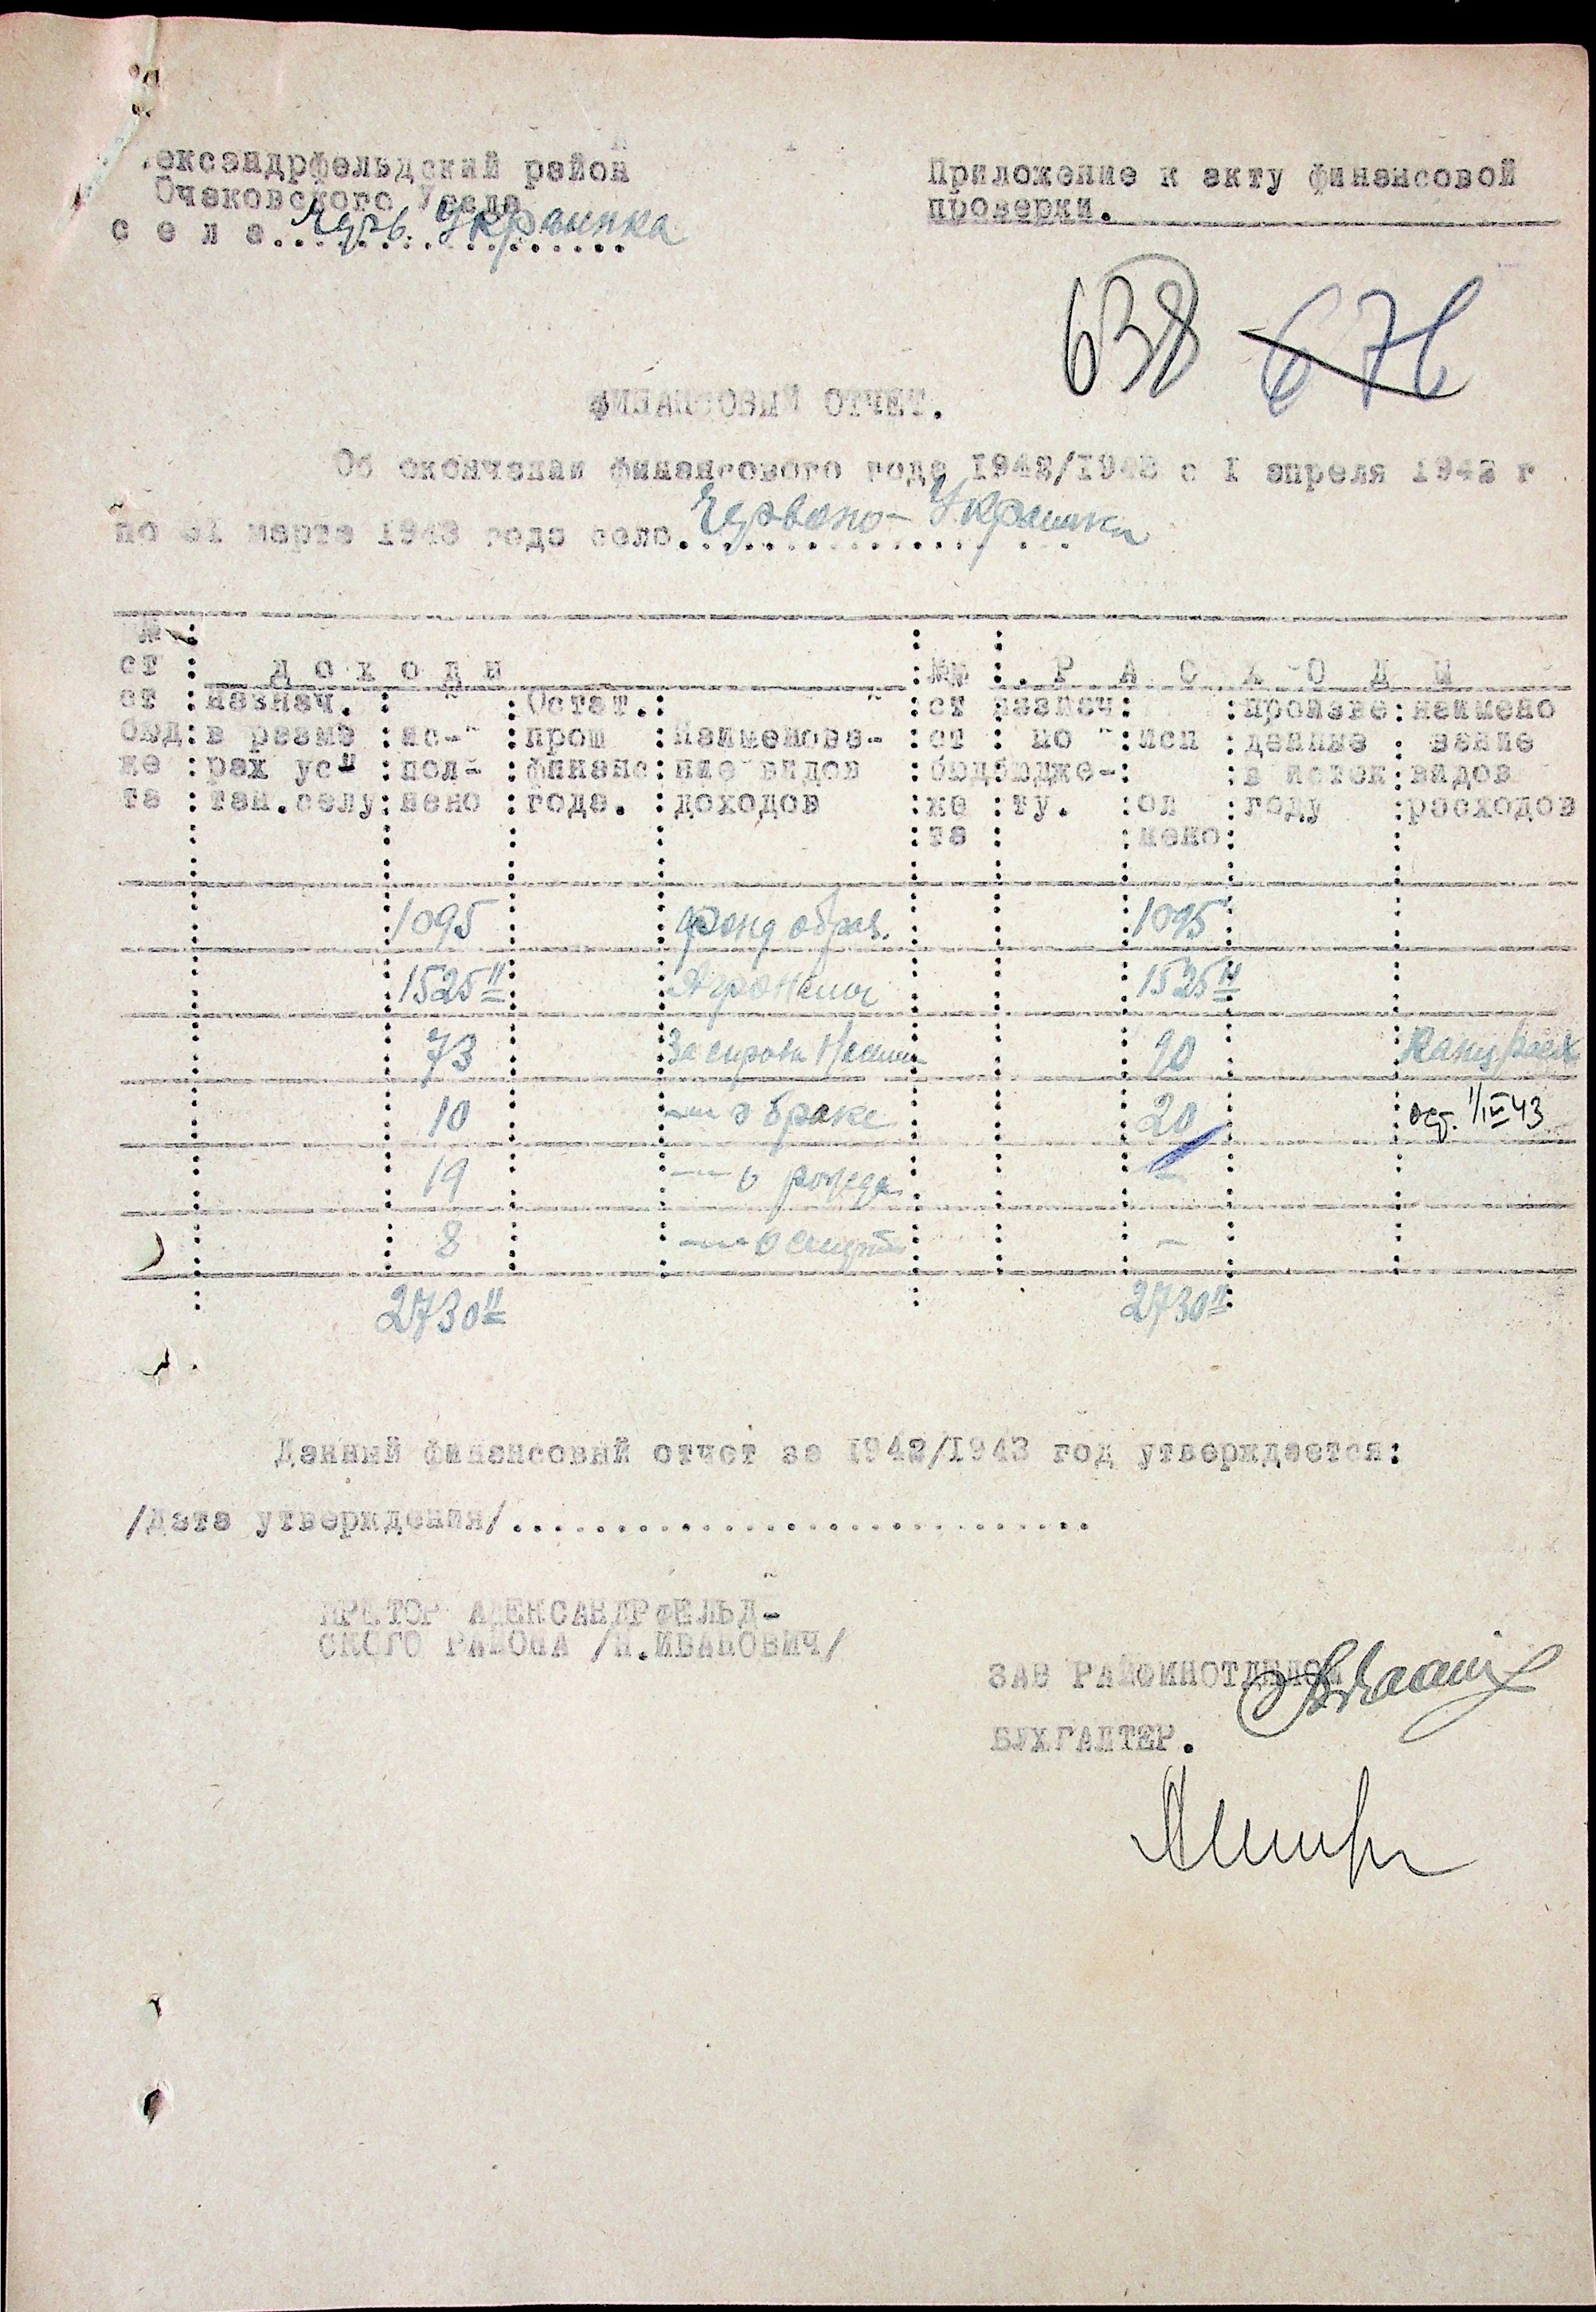 ександрфельдский район
Очаковского Уезда
с е л о.Черв. Украинка
Приложение к акту финансовой
проверки.
638 676
ФИНАНСОВЫЙ ОТЧЕТ.
Об окончании финансового года 1942/1943 с I апреля 1942 г
по 31 марта 1943 года село.Червоно-Украинка
№№ ст ст бюд же та
Д О Х О Д Ы
назнач. в разме рах ус тан.селу
ис- пол- нено
Остат. прош финанс года.
Наименова- ние видов доходов
№№ ст ст бюд же та
Р А С Х О Д Ы
назнач по бюдже- ту.
исп ол нено
произве дення в истек году
наимено вание видов расходов
1095 Фонд образ. 1095
1525 Агрономич 1525
73 За справки 90 Канц расх
10 —"— о браке 20 ост. 1/IV 43
19 —"— о рожда. —
8 —"— о смерти —
2730 2730
Данный финансовый отчет за 1942/1943 год утверждается:
/Дата утверждения/..............................
ПРЕТОР АЛЕКСАНДРФЕЛЬД-
СКОГО РАЙОНА /Н.ИВАНОВИЧ/
ЗАВ РАЙФИНОТДЕЛОМ
БУХГАЛТЕР.